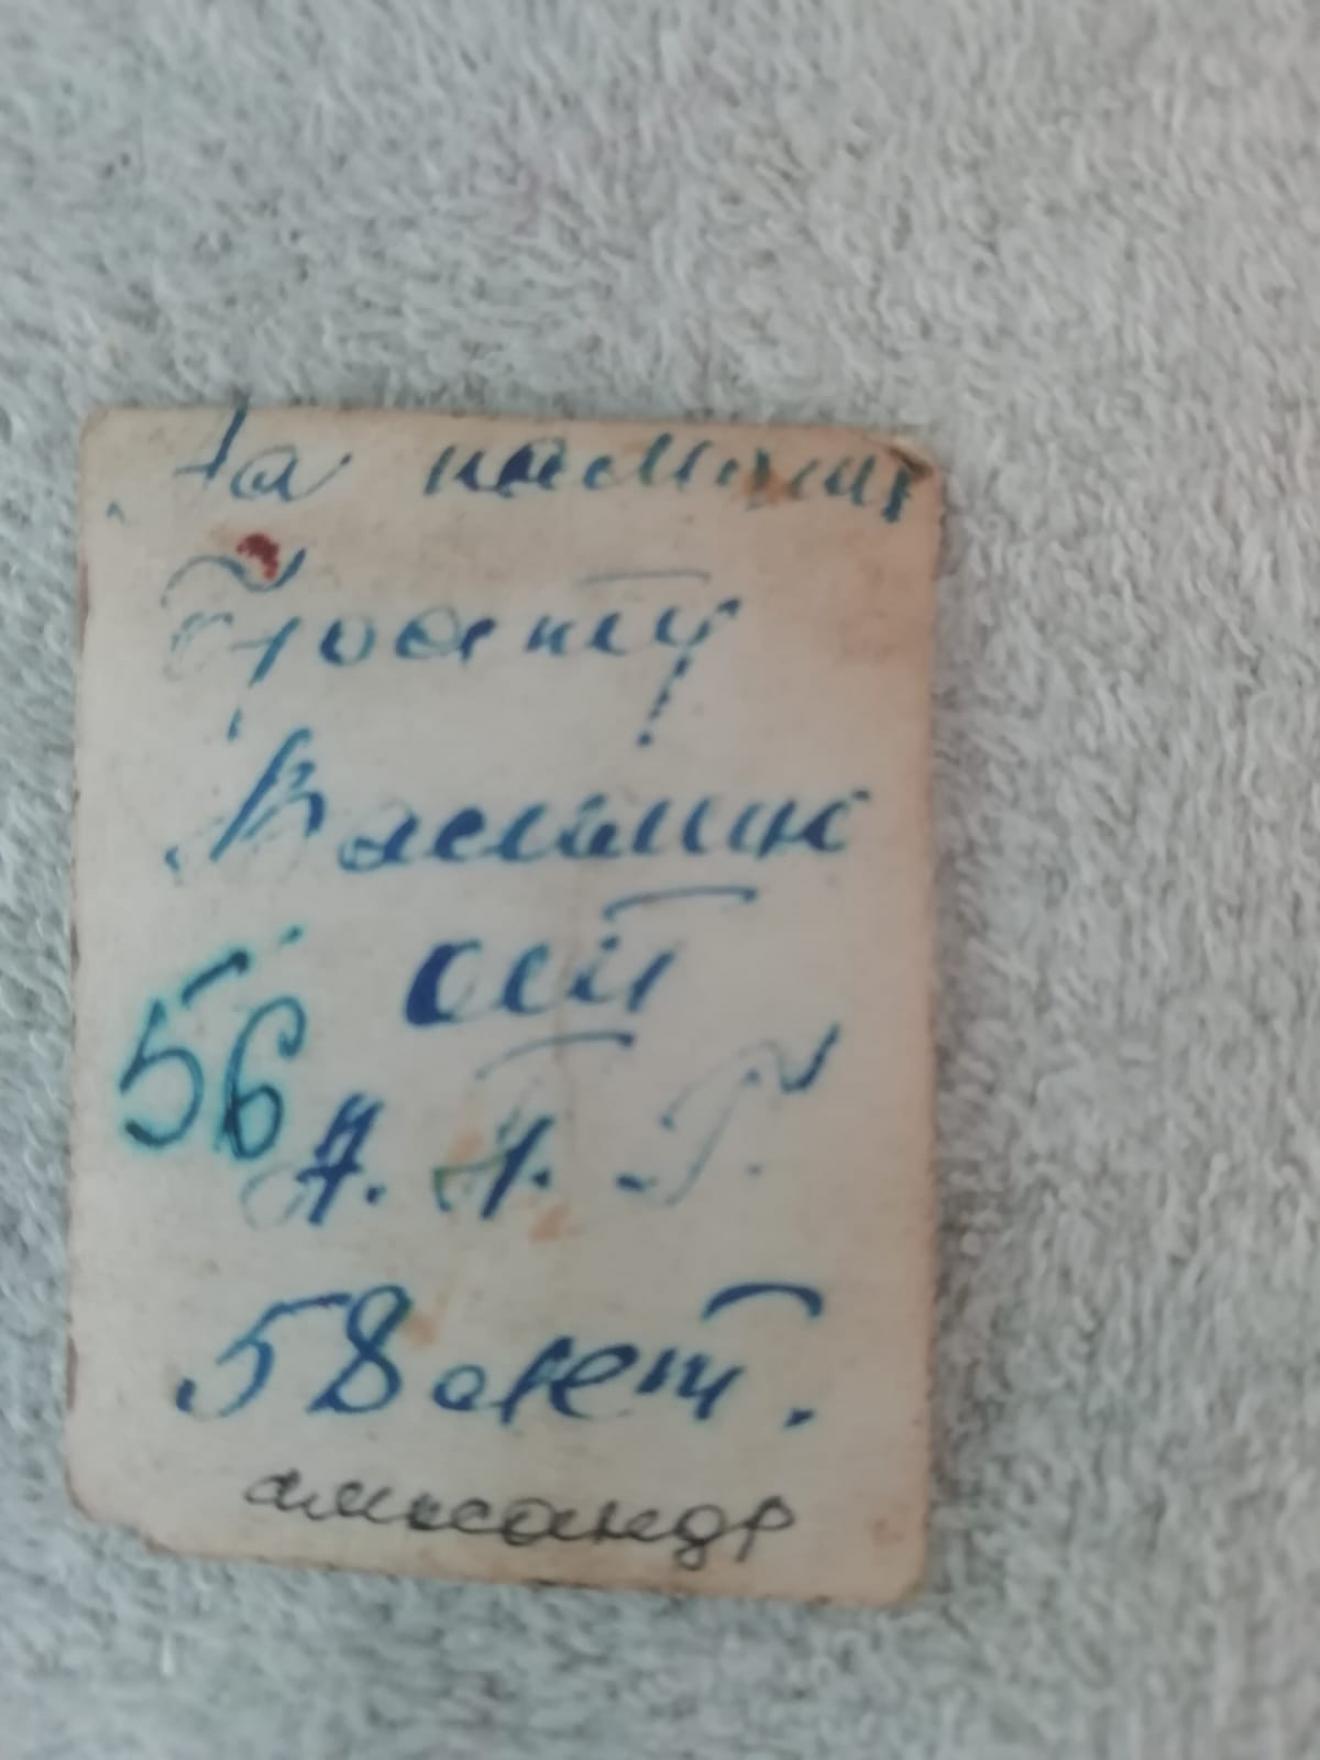 На память
брату
Василию
от
56
А. А. Г.
58 лет.
александр